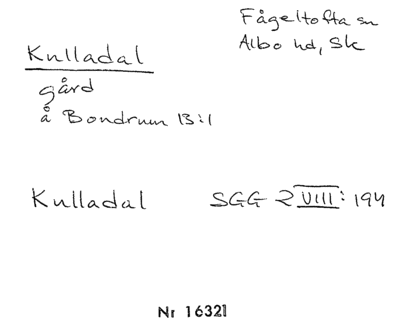 Fågeltofta sn
Albo hd, Sk
Kulladal
gård
å Bondrum 13:1
Kulladal SGG 2 VIII: 194
Nr 16321